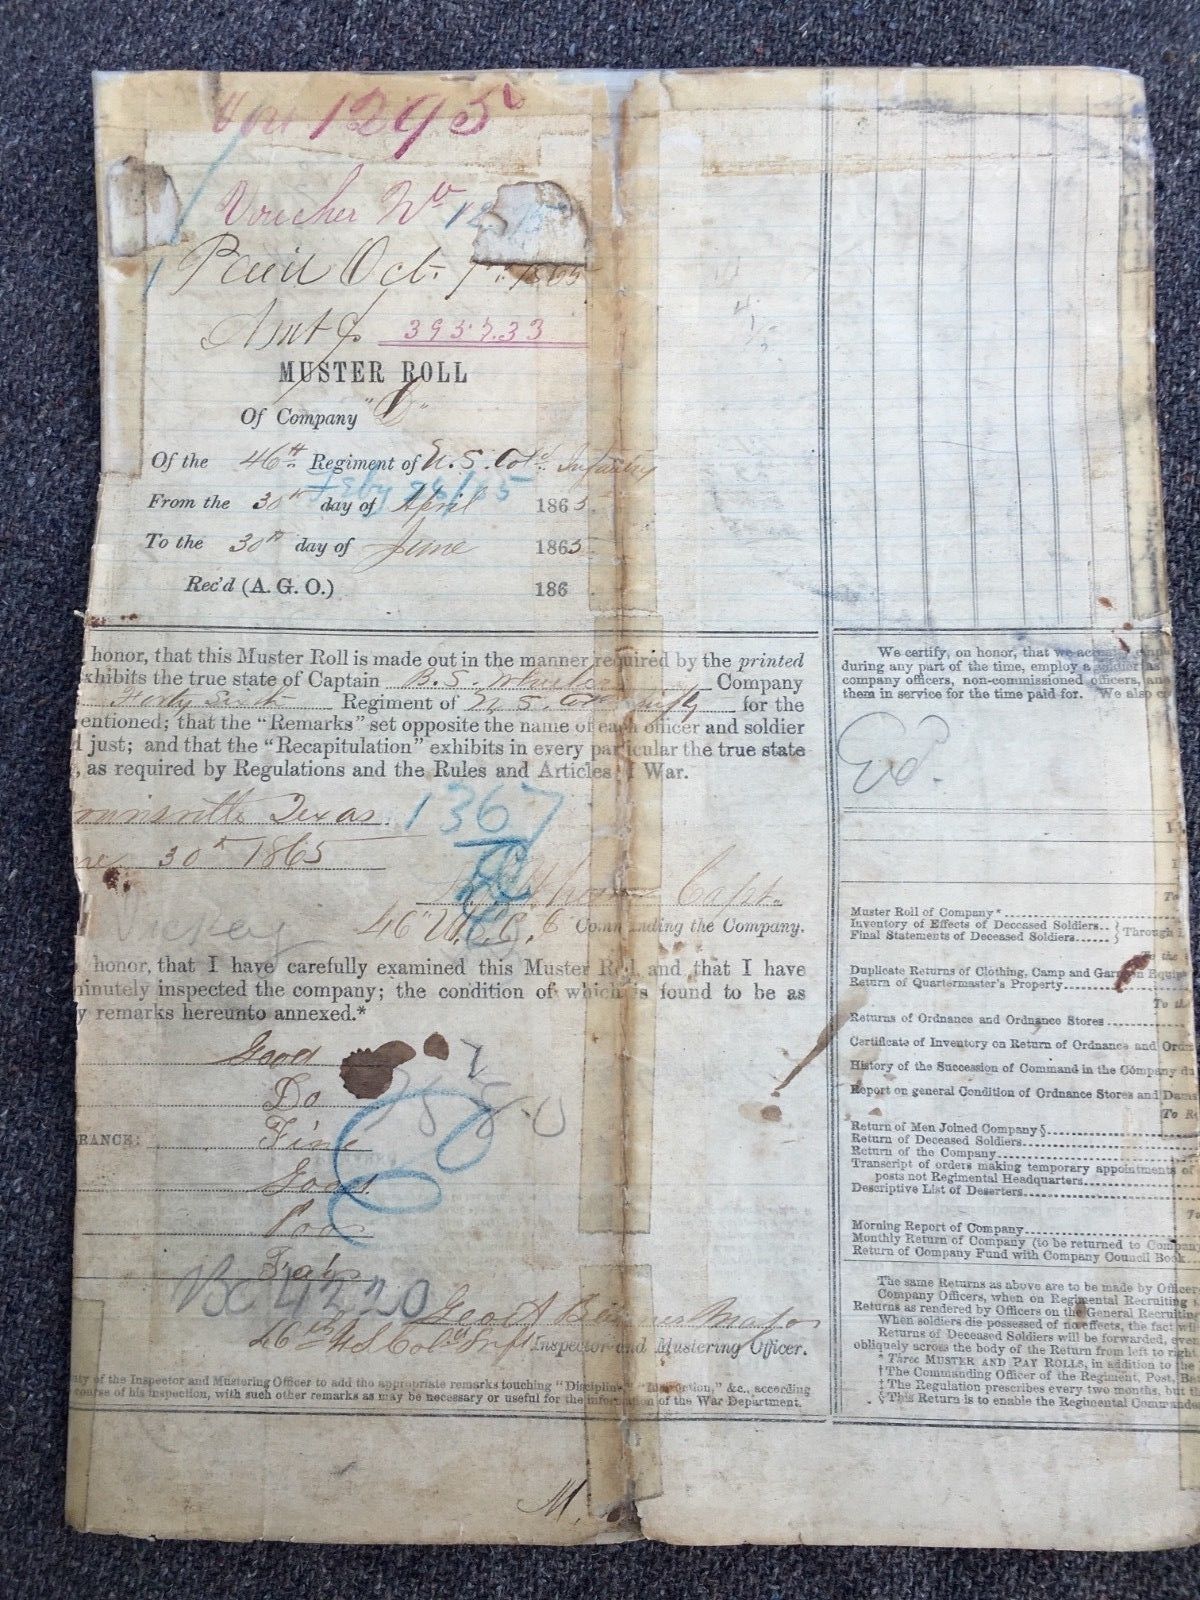 1295
Voucher No
Paid Oct. 1865
Amt $ 3957.33
MUSTER ROLL
Of Company
Of the 46th Regiment of U.S. Cold Infantry
Feby 28/65
From the 30th day of April 1865.
To the 30th day of June 1865
Rec'd (A. G. O.) 186
honor, that this Muster Roll is made out in the manner required by the printed
exhibits the true state of Captain B. S. Company
Forty Sixth Regiment of U S for the
entioned; that the "Remarks" set opposite the name of each officer and soldier
just; and that the "Recapitulation" exhibits in every particular the true state
, as required by Regulations and the Rules and Articles War.
Texas. 1367
30th 1865
Capt.
46" U.S.C. Commanding the Company.
honor, that I have carefully examined this Muster Roll and that I have
minutely inspected the company; the condition of which is found to be as
y remarks hereunto annexed.*
Good
Do
RANCE: Fine
Good
4220
Geo A Major
46th Inspector and Mustering Officer.
uty of the Inspector and Mustering Officer to add the appropriate remarks touching "Discipline," "Inspection," &c., according
course of his inspection, with such other remarks as may be necessary or useful for the information of the War Department.
M.
We certify, on honor, that we
during any part of the time, employ a soldier as
company officers, non-commissioned officers, and
them in service for the time paid for. We also
Ed.
Muster Roll of Company*
Inventory of Effects of Deceased Soldiers.. } Through
Final Statements of Deceased Soldiers
To the
Duplicate Returns of Clothing, Camp and Garrison Equip
Return of Quartermaster's Property
Returns of Ordnance and Ordnance Stores
Certificate of Inventory on Return of Ordnance and Ord
History of the Succession of Command in the Company du
Report on general Condition of Ordnance Stores and Dama
Return of Men Joined Company§
Return of Deceased Soldiers
Return of the Company
Transcript of orders making temporary appointments of
posts not Regimental Headquarters
Descriptive List of Deserters
To
Morning Report of Company
Monthly Return of Company (to be returned to Company
Return of Company Fund with Company Council Book.
The same Returns as above are to be made by Office
Company Officers, when on Regimental Recruiting
Returns as rendered by Officers on the General Recruitin
When soldiers die possessed of no effects, the fact wil
Returns of Deceased Soldiers will be forwarded, eve
obliquely across the body of the Return from left to right
* Three MUSTER AND PAY ROLLS, in addition to the
† The Commanding Officer of the Regiment, Post, Bat
‡ The Regulation prescribes every two months, but t
§ This Return is to enable the Regimental Commande